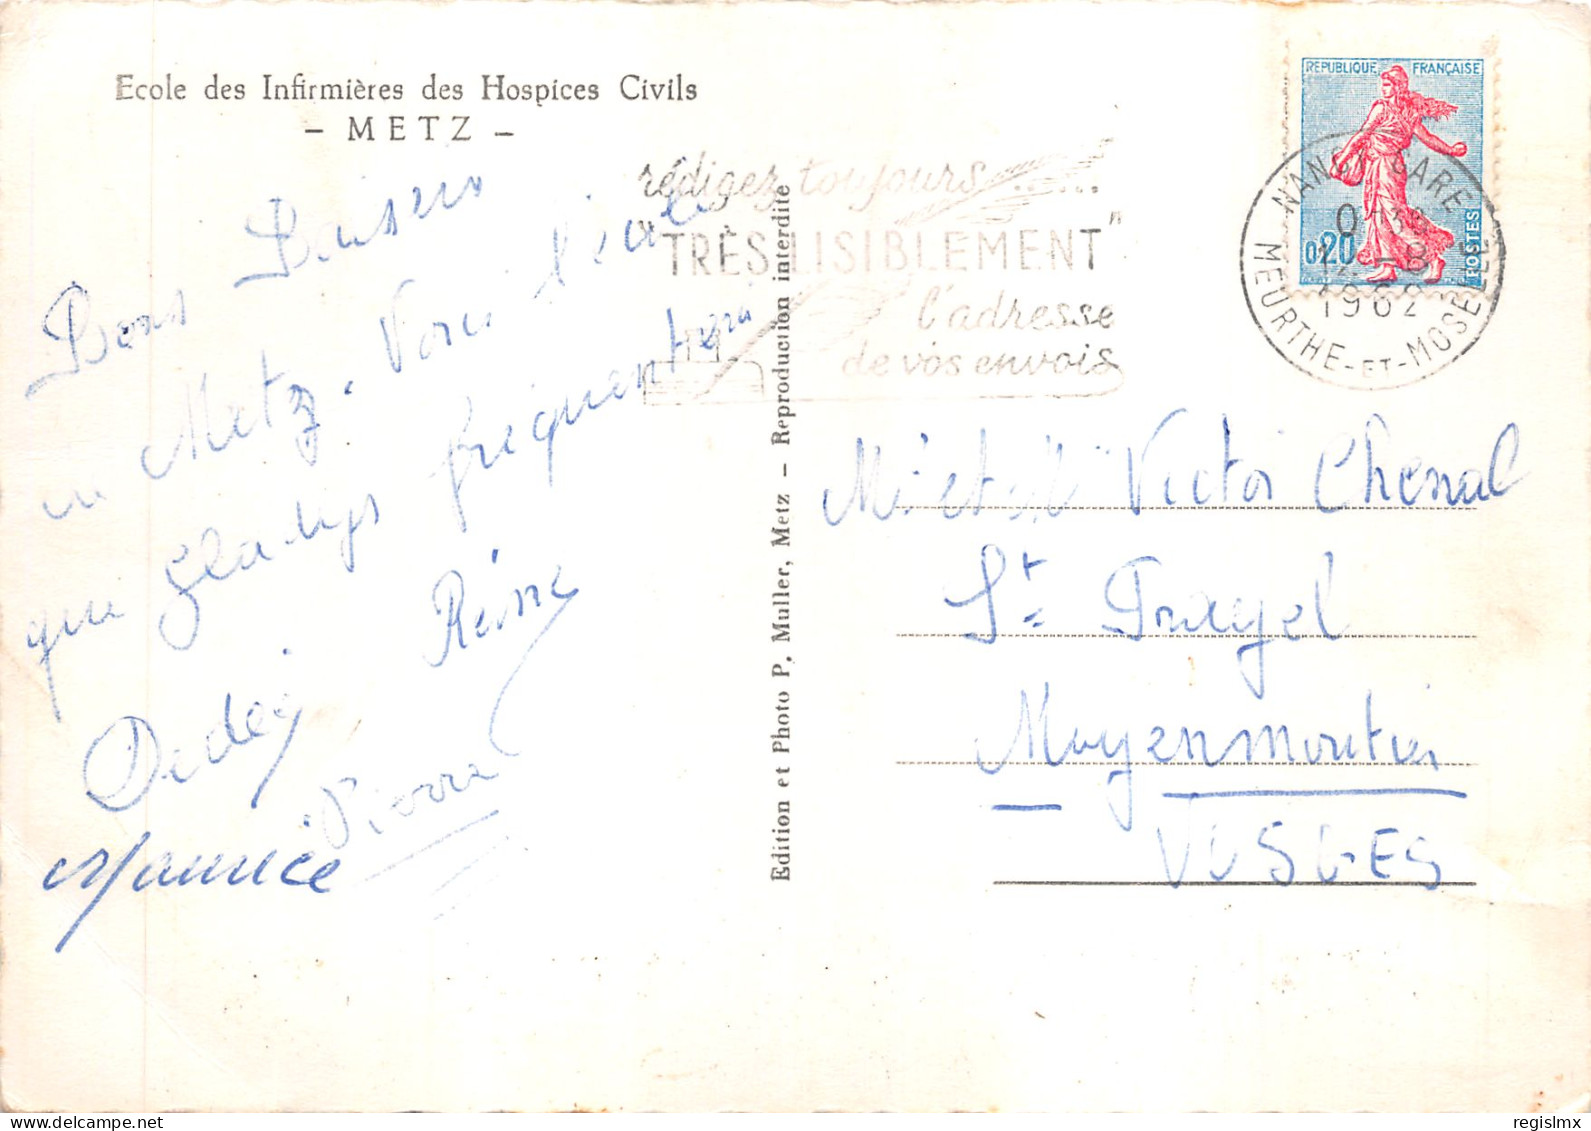 Ecole des Infirmières des Hospices Civils
- METZ -
Bons Baisers
de Metz. Voici l'école
que Gladys fréquentera
Dédey Reine
Pierre
Maurice
Edition et Photo P. Muller, Metz - Reproduction interdite
rédigez toujours......
"TRÈS LISIBLEMENT"
l'adresse
de vos envois
REPUBLIQUE FRANÇAISE
0,20
POSTES
NANCY GARE
1962
MEURTHE-ET-MOSELLE
Mr et Me Victor Chenal
St Prayel
Moyenmoutier
VOSGES
regislmx